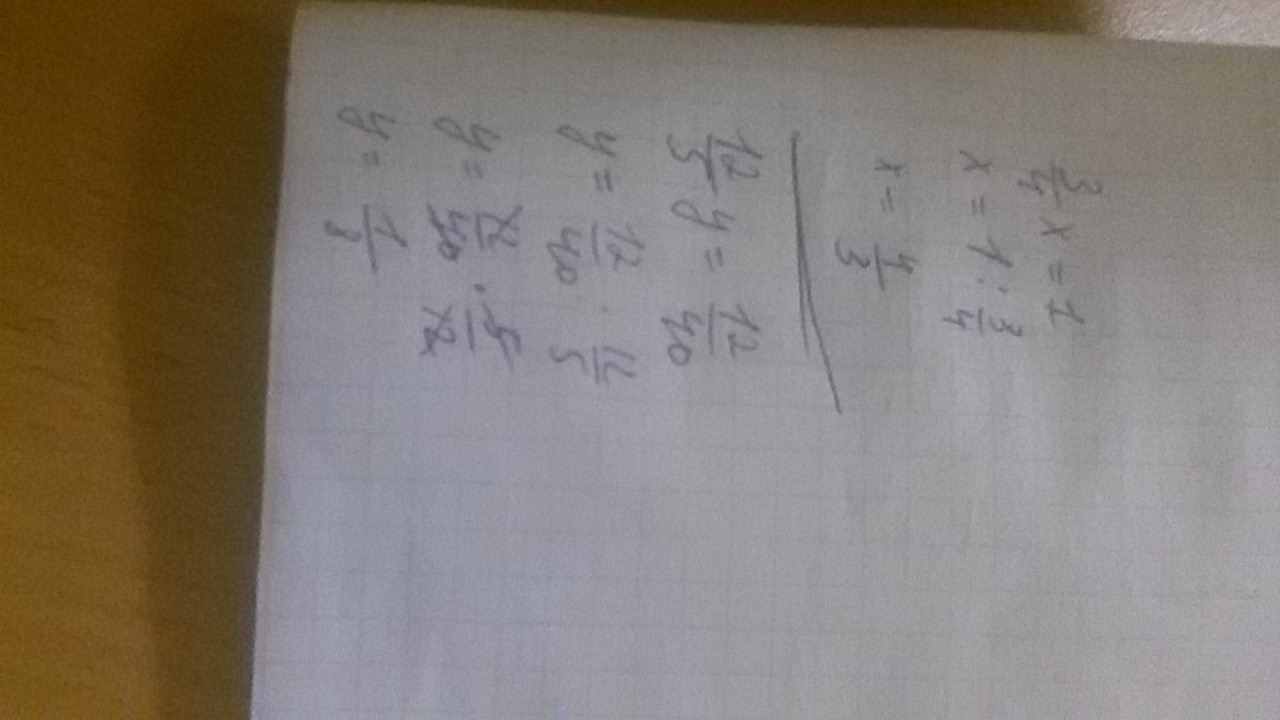 3/4 x = 1
x = 1 : 3/4
x = 4/3
12/5 y = 12/40
y = 12/40 : 12/5
y = 12/40 · 5/12
y = 1/8